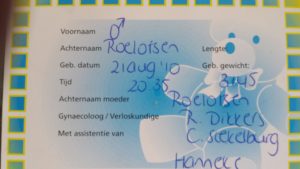 Voornaam ♂
Achternaam Roelofsen Lengte
Geb. datum 21 aug '10 Geb. gewicht:
Tijd 20 35 3445
Achternaam moeder Roelofsen
Gynaecoloog / Verloskundige R. Dikkers
Met assistentie van C. Stekelburg
Hanneke